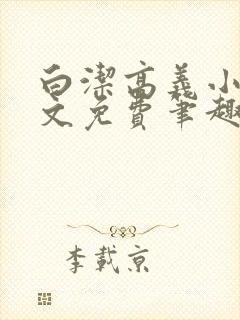 白潔高義小
文免費筆趣
李載京